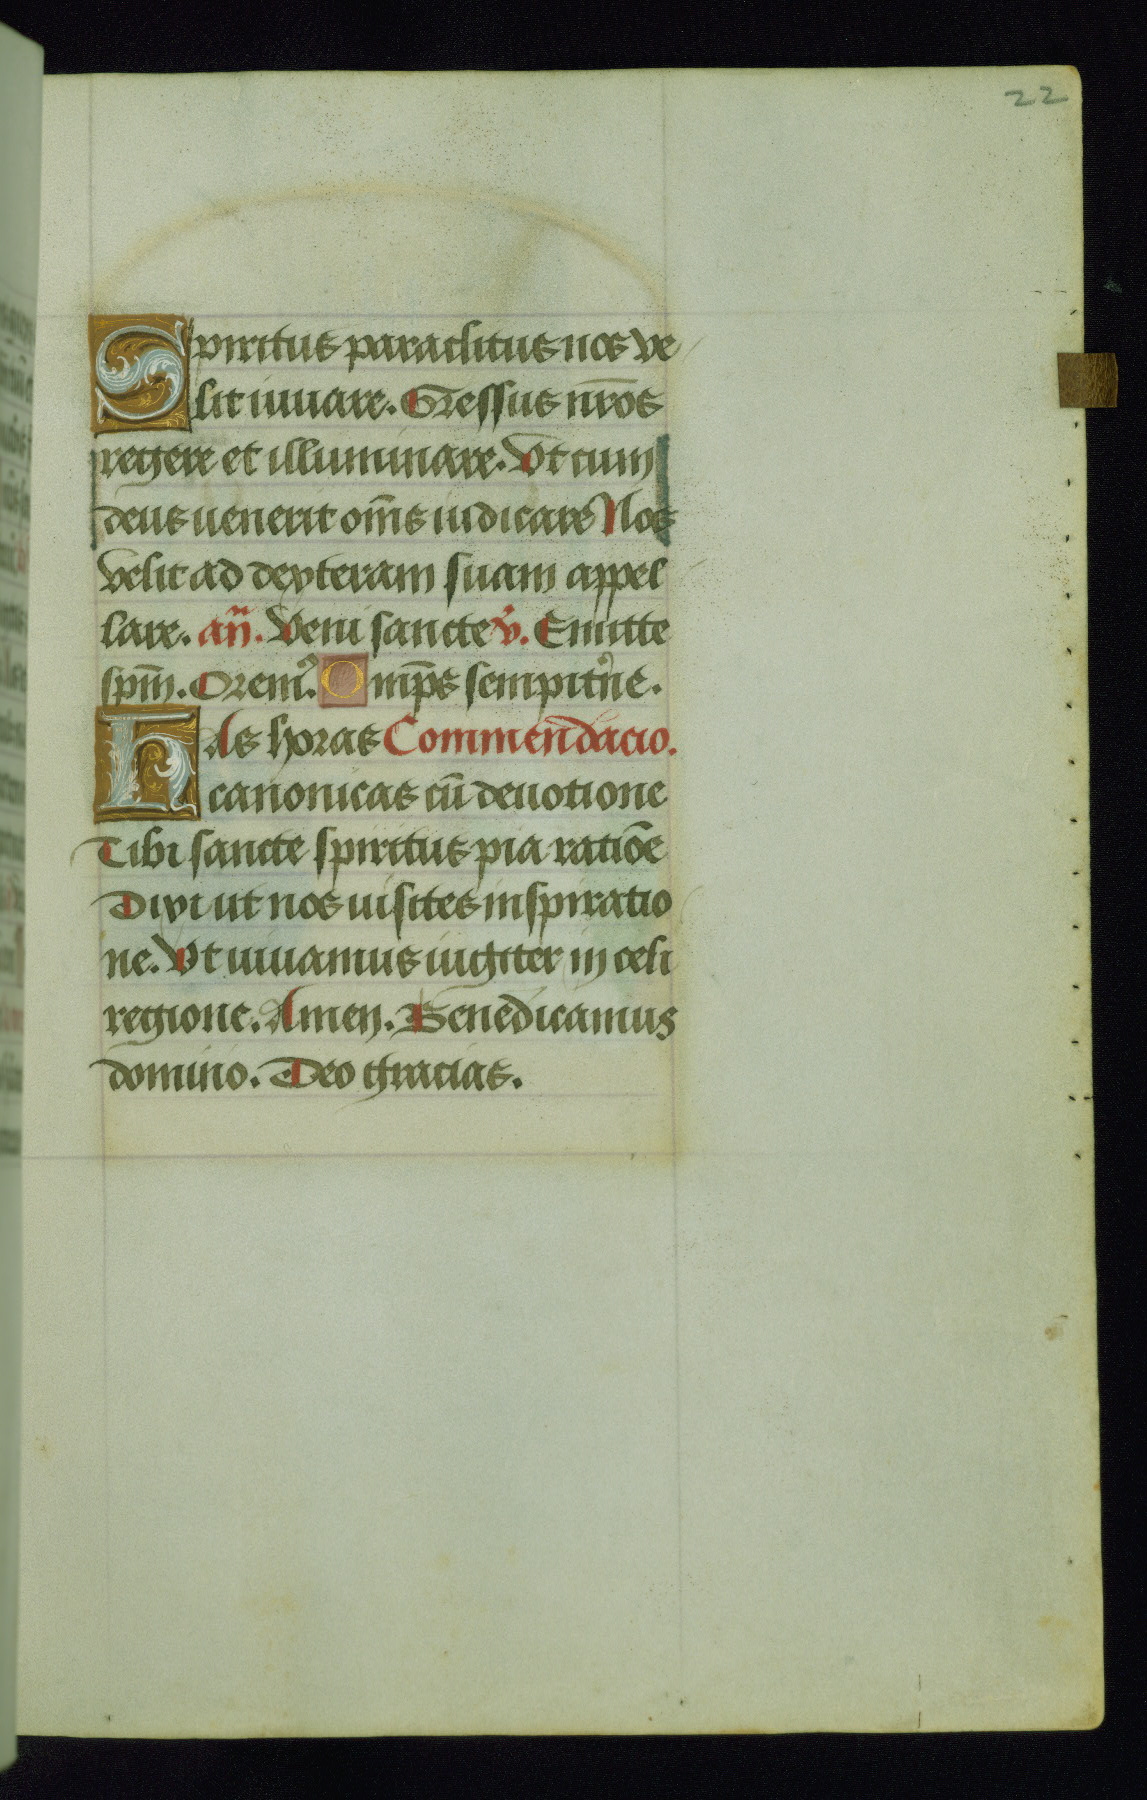 22
Spiritus paraclitus nos ve
lit iuuare. Gressus nr̄os
regere et illuminare. Vt cum
deus uenerit om̄s iudicare Nos
velit ad dexteram suam appel
lare. an̄. Veni sancte v̄. Emitte
spm̄. Orem᾽. Omp̄s sempit᾽ne.
Has horas Commendacio.
canonicas cū deuotione
Tibi sancte spiritus pia ratiōe
Dixi ut nos uisites inspiratio
ne. Vt uiuamus iugiter in celi
regione. Amen. Benedicamus
domino. Deo gracias.